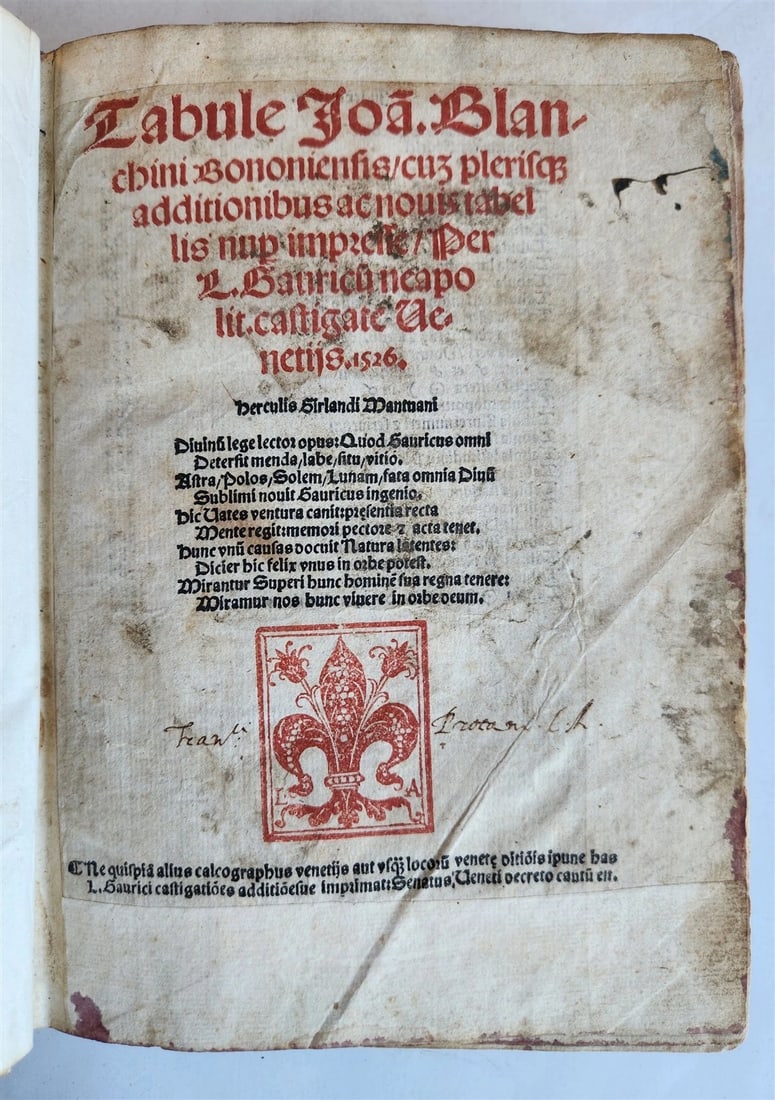 Tabule Joã. Blan-
chini Bononiensis/cuʒ plerisqʒ
additionibus ac nouis tabel
lis nuꝑ impresse/Per
L. Gauricũ neapo
lit. castigate Ve-
netijs. 1526.
Herculis Girlandi Mantuani
Diuinũ lege lector opus: Quod Gauricus omni
Detersit menda/labe/situ/vitio.
Astra/Polos/Solem/Lunam/fata omnia Diuũ
Sublimi nouit Gauricus ingenio.
Hic Uates ventura canit: presentia recta
Mente regit: memori pectore ⁊ acta tenet.
Hunc vnũ causas docuit Natura latentes:
Dicier hic felix vnus in orbe potest.
Mirantur Superi hunc hominẽ sua regna tenere:
Miramur nos hunc viuere in orbe deum.
Fran.
L A
⸿ Ne quispiã alius calcographus venetijs aut vsqȝ locorũ venetę ditiõis ipune has
L. Gaurici castigatiões additiõesue imprimat: Senatus Veneti decreto cautũ est.